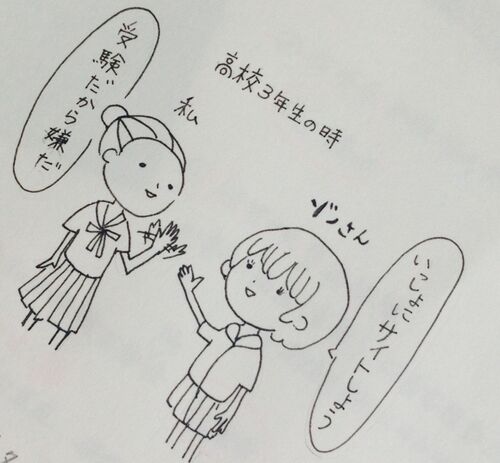 高校3年生の時
私
受験だから嫌だ
ゾンさん
いっしょにバイトしよう